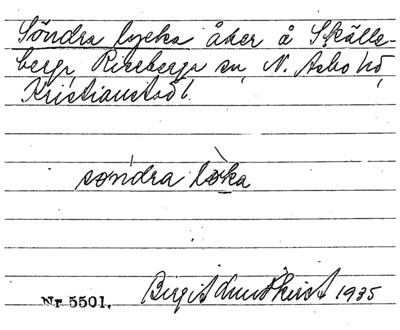 Söndra lycka åker å Skälle-
berga, Riseberga sn, N. Åsbo hd
Kristianstad l.
søndra løka
Nr 5501. Birgit Lundkvist 1935